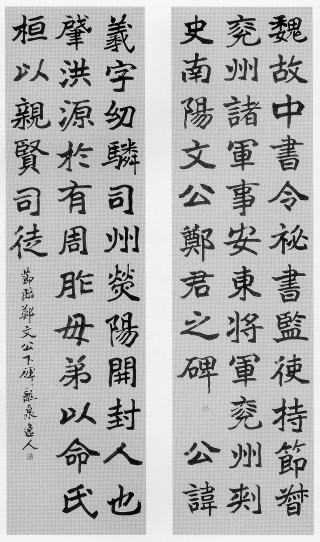 魏故中書令祕書監使持節督
兗州諸軍事安東將軍兗州刺
史南陽文公鄭君之碑 公諱
羲字幼驎司州熒陽開封人也
肇洪源於有周胙母弟以命氏
桓以親賢司徒
節臨鄭文公下碑